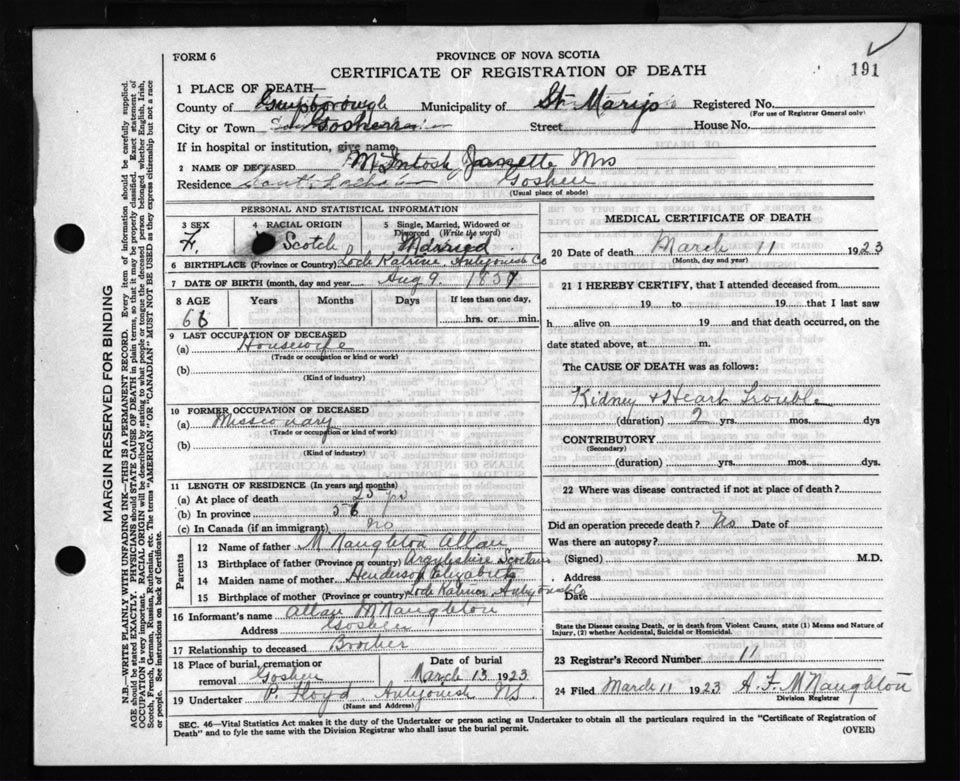 FORM 6
PROVINCE OF NOVA SCOTIA
CERTIFICATE OF REGISTRATION OF DEATH
191
1 PLACE OF DEATH—
County of Guysborough Municipality of St Marys Registered No.
(For use of Registrar General only)
City or Town Goshen Street House No.
If in hospital or institution, give name
2 NAME OF DECEASED McIntosh Janette Mrs
Residence Goshen
(Usual place of abode)
PERSONAL AND STATISTICAL INFORMATION
3 SEX 4 RACIAL ORIGIN 5 Single, Married, Widowed or Divorced (Write the word)
F. Scotch Married
6 BIRTHPLACE (Province or Country) Loch Katrine Antigonish Co
7 DATE OF BIRTH (month, day and year) Aug 9. 1857
8 AGE Years Months Days If less than one day,
66 hrs. or min.
9 LAST OCCUPATION OF DECEASED
(a) Housewife
(Trade or occupation or kind or work)
(b)
(Kind of industry)
10 FORMER OCCUPATION OF DECEASED
(a) Missionary
(Trade or occupation or kind of work)
(b)
(Kind of industry)
11 LENGTH OF RESIDENCE (In years and months)
(a) At place of death 25
(b) In province 56
(c) In Canada (if an immigrant) no
Parents
12 Name of father McNaughton Allan
13 Birthplace of father (Province or country) Argyleshire
14 Maiden name of mother Henderson Elizabeth
15 Birthplace of mother (Province or country) Loch Katrine Antigonish Co
16 Informant's name Allan McNaughton
Address Goshen
17 Relationship to deceased Brother
18 Place of burial, cremation or removal Goshen Date of burial March 13 1923
19 Undertaker P. Floyd Antigonish NS
(Name and Address)
MEDICAL CERTIFICATE OF DEATH
20 Date of death March 11 1923
(Month, day and year)
21 I HEREBY CERTIFY, that I attended deceased from
19 to 19 that I last saw
h alive on 19 and that death occurred, on the
date stated above, at m.
The CAUSE OF DEATH was as follows:
Kidney & Heart Trouble
(duration) 2 yrs. mos. dys
CONTRIBUTORY
(Secondary)
(duration) yrs. mos. dys.
22 Where was disease contracted if not at place of death?
Did an operation precede death? No Date of
Was there an autopsy?
(Signed) M.D.
Address
Date
State the Disease causing Death, or in death from Violent Causes, state (1) Means and Nature of
Injury, (2) whether Accidental, Suicidal or Homicidal.
23 Registrar's Record Number 11
24 Filed March 11 1923 A. F. McNaughton
Division Registrar
SEC. 46—Vital Statistics Act makes it the duty of the Undertaker or person acting as Undertaker to obtain all the particulars required in the "Certificate of Registration of
Death" and to fyle the same with the Division Registrar who shall issue the burial permit.
(OVER)
MARGIN RESERVED FOR BINDING
N.B.—WRITE PLAINLY WITH UNFADING INK—THIS IS A PERMANENT RECORD. Every item of information should be carefully supplied.
AGE should be stated EXACTLY. PHYSICIANS should STATE CAUSE OF DEATH in plain terms, so that it may be properly classified. Exact statement of
OCCUPATION is very important. RACIAL ORIGIN will be described by stating to what people or tongue the deceased person belonged whether English, Irish,
Scotch, French, German, Russian, Ruthenian, etc. The terms "AMERICAN" or "CANADIAN" MUST NOT BE USED as they express citizenship but not a race
or people. See instructions on back of Certificate.